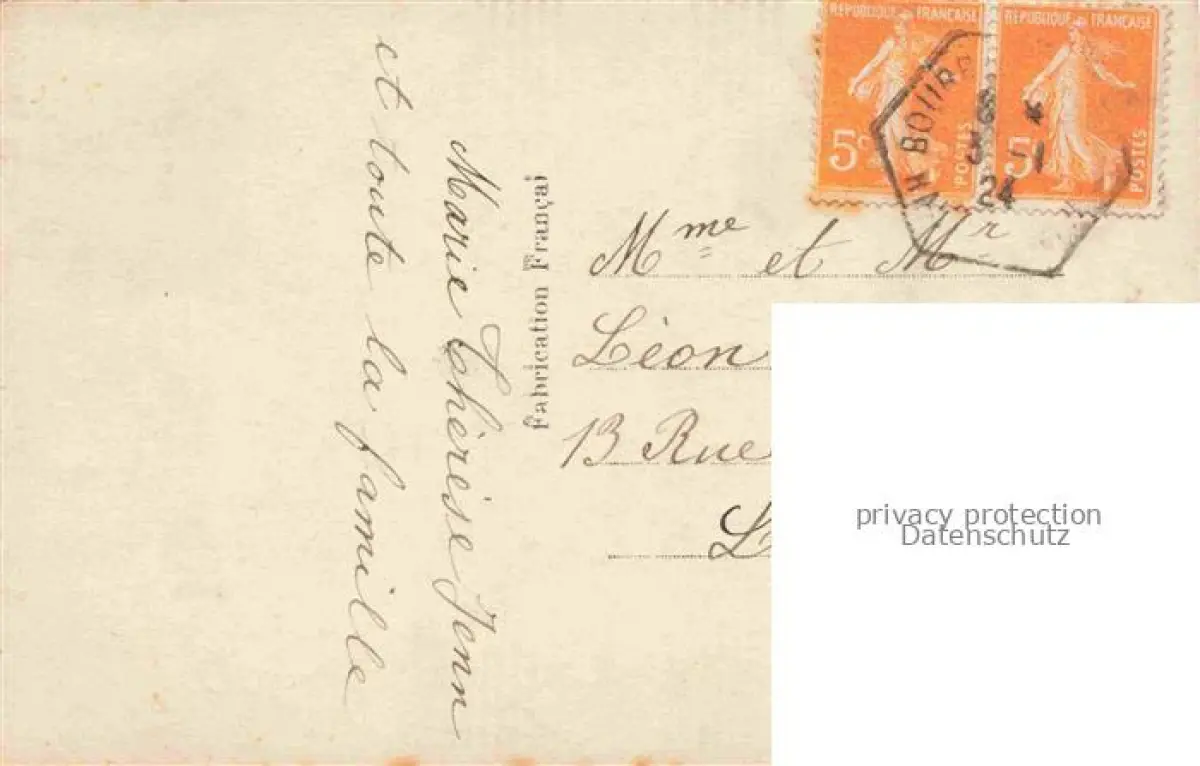 Marie Thérèse Jenn
et toute la famille
Fabrication Françai
RÉPUBLIQUE FRANÇAISE
5c
POSTES
RÉPUBLIQUE FRANÇAISE
5c
POSTES
8 *
3 -1
24
Mme et Mr
Léon
13 Rue
privacy protection
Datenschutz